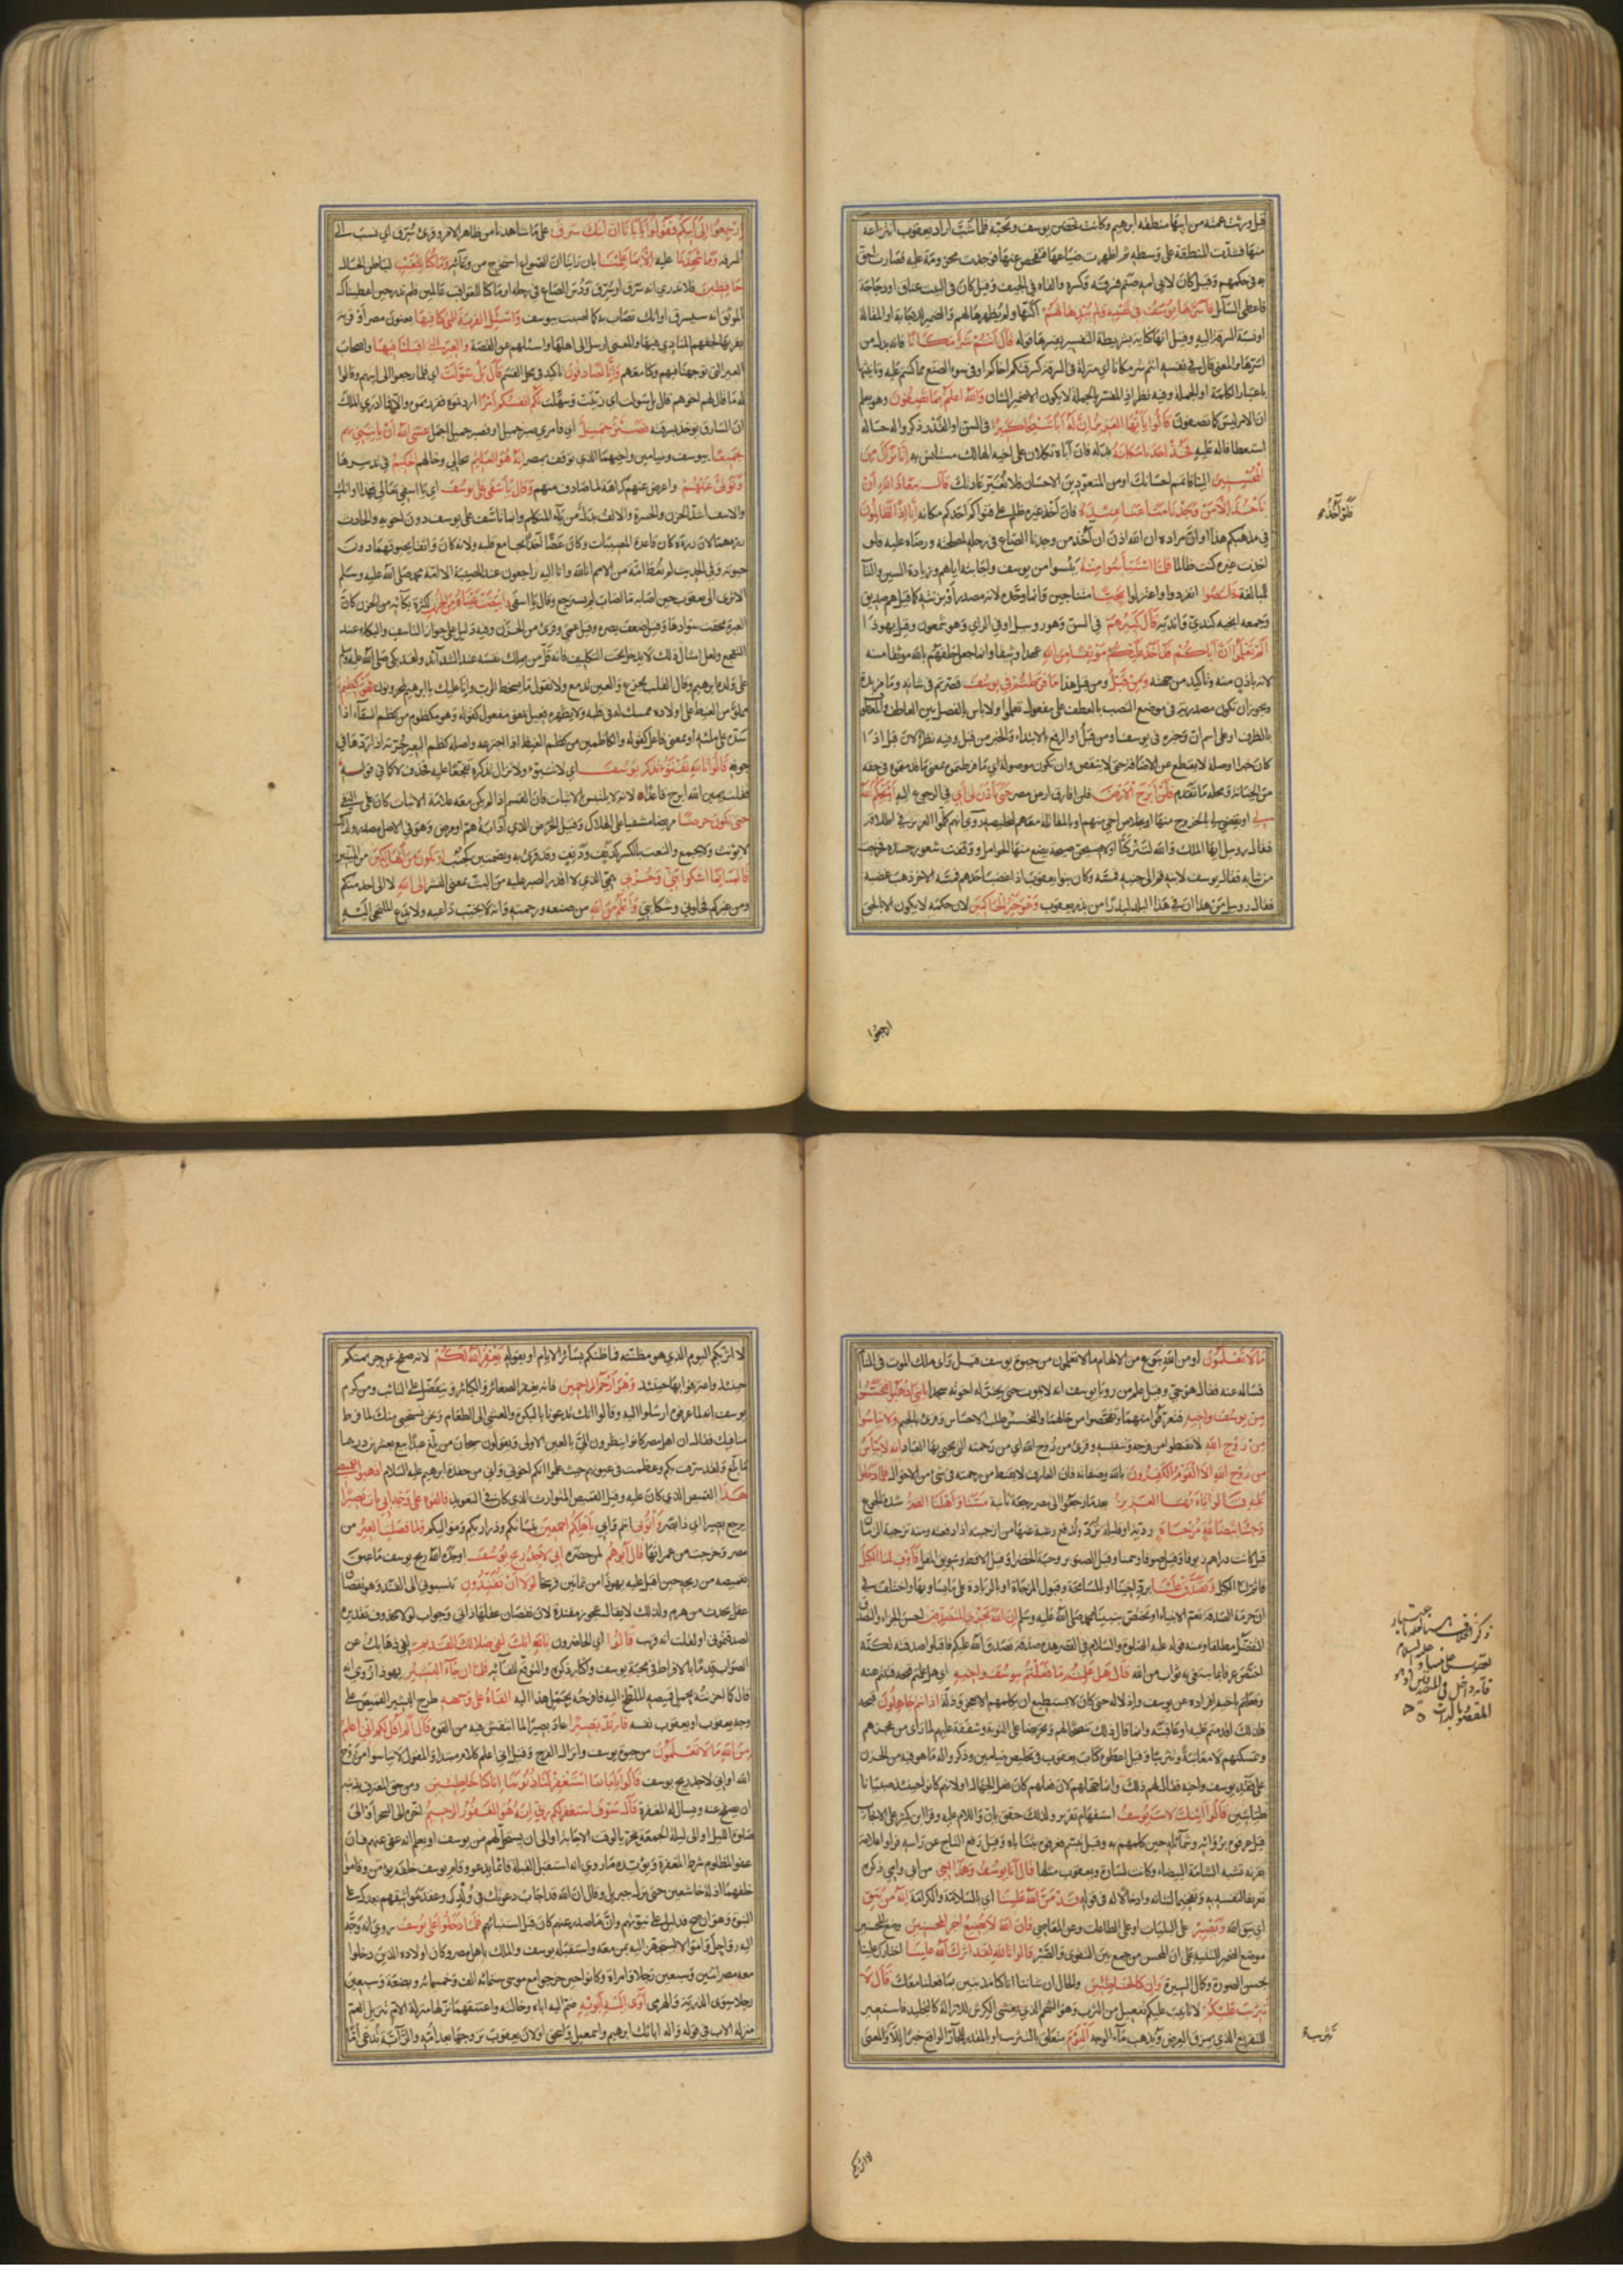 قيل ورثت عمته من ابيها منطقة ابرهيم وكانت تحضن يوسف وتحبه فلما شب اراد يعقوب انتزاعه
منها فشدت المنطقة على وسطه ثم اظهرت ضياعها فتفحص عنها فوجدت محزومة عليه فصارت احق
به في حكمهم وقيل كان لابي امه صنم فسرقه وكسره والقاه في الجيف وقيل كان في البيت عناق او دجاجة
فاعطى السائل فاسرها يوسف في نفسه ولم يبدها لهم اكنها ولم يظهرها لهم والضمير للاجابة او المقالة
او نسبة السرقة اليه وقيل انها كناية بشريطة التفسير يفسرها قوله قال انتم شر مكانا فانه بدل من
اسرها والمعنى قال في نفسه انتم شر مكانا اي منزلة في السرقة لسرقتكم اخاكم او في سوء الصنع مما كنتم عليه وتانيثها
باعتبار الكلمة او الجملة وفيه نظر اذ المفسر بالجملة لا يكون الا ضمير الشان والله اعلم بما تصفون وهو يعلم
ان الامر ليس كما تصفون قالوا يا ايها العزيز ان له ابا شيخا كبيرا في السن او القدر ذكروا له حاله
استعطافا له عليه فخذ احدنا مكانه بدله فان اباه ثكلان على اخيه الهالك مستانس به انا نراك من
المحسنين الينا فاتمم احسانك او من المتعودين الاحسان فلا تغير عادتك قال معاذ الله ان
ناخذ الا من وجدنا متاعنا عنده فان اخذ غيره ظلم على فتواكم فلو اخذ احدكم مكانه انا اذا لظالمون
في مذهبكم هذا او ان مراده ان الله اذن ان اخذ من وجدنا الصاع في رحله لمصلحته ورضاه عليه فلو
اخذت غيره كنت ظالما فلما استياسوا منه يئسوا من يوسف واجابته اياهم وزيادة السين والتا
للمبالغة خلصوا انفردوا واعتزلوا نجيا متناجين وانما وحده لانه مصدر او بزنته كما قيل هم صديق
وجمعه انجية كندي واندية قال كبيرهم في السن وهو روبيل او في الراي وهو شمعون وقيل يهوذا
الم تعلموا ان اباكم قد اخذ عليكم موثقا من الله عهدا وثيقا وانما جعل حلفهم بالله موثقا منه
لانه باذن منه وتاكيد من جهته ومن قبل ومن قبل هذا ما فرطتم في يوسف قصرتم في شانه وما مزيدة
ويجوز ان تكون مصدرية في موضع النصب بالعطف على مفعول تعلموا ولا باس بالفصل بين العاطف والمعطوف
بالظرف او على اسم ان وخبره في يوسف او من قبل او الرفع بالابتداء والخبر من قبل وفيه نظر لان قبل اذا
كان خبرا او صلة لا يقطع عن الاضافة حتى لا ينقص وان تكون موصولة اي ما فرطتموه بمعنى ما قدمتموه في حقه
من الخيانة ومحله ما تقدم فلن ابرح الارض فلن افارق ارض مصر حتى ياذن لي ابي في الرجوع اليه او يحكم الله
لي او يقضي لي بالخروج منها او بخلاص اخي منهم او بالمقاتلة معهم لتخليصه روي انهم كلموا العزيز في اطلاقه
فقال روبيل ايها الملك والله لتتركنا او لاصيحن صيحة يضع منها الحوامل ووقفت شعور جسده فخرجت
من ثيابه فقال يوسف لابنه قم الى جنبه فمسه وكان بنوا يعقوب اذا غضب احدهم فمسه الاخر ذهب غضبه
فقال روبيل من هذا ان في هذا البلد لبذرا من بذر يعقوب وهو خير الحاكمين لان حكمه لا يكون الا بالحق
ارجعوا
ارجعوا الى ابيكم فقولوا يا ابانا ان ابنك سرق على ما شاهدنا من ظاهر الامر وقرئ سرق اي نسب الى
السرقة وما شهدنا عليه الا بما علمنا بان راينا ان الصواع استخرج من وعائه وما كنا للغيب لباطن الحال
حافظين فلا ندري انه سرق او سرق ودس الصاع في رحله او ما كنا للعواقب عالمين فلم ندر حين اعطيناك
الموثق انه سيسرق او انك تصاب به كما اصبت بيوسف واسئل القرية التي كنا فيها يعنون مصر او قرية
بقربها لحقهم المنادي فيها والمعنى ارسل الى اهلها واسئلهم عن القصة والعير التي اقبلنا فيها واصحاب
العير التي توجهنا فيهم وكنا معهم وانا لصادقون تاكيد في محل القسم قال بل سولت اي فلما رجعوا الى ابيهم وقالوا
له ما قال لهم اخوهم قال بل سولت اي زينت وسهلت لكم انفسكم امرا اردتموه فقررتموه والا فما ادري الملك
ان السارق يؤخذ بسرقته فصبر جميل اي فامري صبر جميل او فصبر جميل اجمل عسى الله ان ياتيني بهم
جميعا بيوسف وبنيامين واخيهما الذي توقف بمصر انه هو العليم بحالي وحالهم الحكيم في تدبيرها
وتولى عنهم واعرض عنهم كراهة لما صادف منهم وقال يا اسفى على يوسف اي يا اسفي تعالي فهذا اوانك
والاسف اشد الحزن والحسرة والالف بدل من ياء المتكلم وانما تاسف على يوسف دون اخويه والحادث
رزءهما لان رزءه كان قاعدة المصيبات وكان غضا اخذا بمجامع قلبه ولانه كان واثقا بحيوتهما دون
حيوته وفي الحديث لم تعط امة من الامم انا لله وانا اليه راجعون عند المصيبة الا امة محمد صلى الله عليه وسلم
الا ترى الى يعقوب حين اصابه ما اصاب لم يسترجع وقال يا اسفى وابيضت عيناه من الحزن لكثرة بكائه من الحزن كان
العبرة محقت سوادها وقيل ضعف بصره وقيل عمي وقرئ من الحزن وفيه دليل على جواز التاسف والبكاء عند
التفجع ولعل امثال ذلك لا يدخل تحت التكليف فانه قل من يملك نفسه عند الشدائد ولقد بكى صلى الله عليه وسلم
على ولده ابرهيم وقال القلب يجزع والعين تدمع ولا نقول ما يسخط الرب وانا عليك يا ابرهيم لمحزونون فهو كظيم
مملو من الغيظ على اولاده ممسك له في قلبه ولا يظهره فعيل بمعنى مفعول كقوله وهو مكظوم من كظم السقاء اذا
شده على ملئه او بمعنى فاعل كقوله والكاظمين من كظم الغيظ اذا اجترعه واصله كظم البعير جرته اذا ردها في
جوفه قالوا تالله تفتؤ تذكر يوسف اي لا تفتؤ ولا تزال تذكره تفجعا عليه فحذف لا كما في قوله
فقلت يمين الله ابرح قاعدا لانه لا يلتبس بالاثبات فان القسم اذا لم يكن معه علامة الاثبات كان على النفي
حتى تكون حرضا مريضا مشفيا على الهلاك وقيل الحرض الذي اذابه هم او مرض وهو في الاصل مصدر ولذلك
لا يؤنث ولا يجمع والنعت بالكسر كدنف ودنف وقد قرئ به وبضمتين كجنب او تكون من الهالكين من الميتين
قال انما اشكوا بثي وحزني همي الذي لا اقدر الصبر عليه من البث بمعنى النشر الى الله لا الى احد منكم
ومن غيركم فخلوني وشكايتي واعلم من الله من صنعه ورحمته وانه لا يخيب داعيه ولا يدع الملتجي اليه
ما لا تعلمون او من الله بنوع من الالهام ما لا تعلمون من حيوة يوسف قيل راى ملك الموت في المنام
فساله عنه فقال هو حي وقيل علم من رؤيا يوسف انه لا يموت حتى يخر له اخوته سجدا يا بني اذهبوا فتحسسوا
من يوسف واخيه فتعرفوا منهما وتفحصوا من حالهما والتحسس طلب الاحساس وقرئ بالجيم ولا تياسوا
من روح الله لا تقنطوا من فرجه وتنفيسه وقرئ من روح الله اي من رحمته التي يحيى بها العباد انه لا يياس
من روح الله الا القوم الكفرون بالله وصفاته فان العارف لا يقنط من رحمته في شئ من الاحوال فلما دخلوا
عليه قالوا يا ايها العزيز بعد ما رجعوا الى مصر رجعة ثانية مسنا واهلنا الضر شدة الجوع
وجئنا ببضاعة مزجاة رديئة او قليلة ترد وتدفع رغبة عنها من ازجيته اذا دفعته ومنه تزجية الزمان
قيل كانت دراهم زيوفا وقيل صوفا وسمنا وقيل الصنوبر وحبة الخضراء وقيل الاقط وسويق المقل فاوف لنا الكيل
فاتم لنا الكيل وتصدق علينا برد اخينا او بالمسامحة وقبول المزجاة او بالزيادة على ما يساويها واختلف في
ان حرمة الصدقة تعم الانبياء او تختص بنبينا محمد صلى الله عليه وسلم ان الله يجزي المتصدقين احسن الجزاء والتصدق
التفضل مطلقا ومنه قوله عليه الصلوة والسلام في القصر هذه صدقة تصدق الله عليكم فاقبلوا صدقته لكنه
اختص عرفا بما يبتغى به ثواب من الله قال هل علمتم ما فعلتم بيوسف واخيه اي هل علمتم قبحه فتبتم عنه
وفعلهم باخيه افراده عن يوسف واذلاله حتى كان لا يستطيع ان يكلمهم الا بعجز وذلة اذ انتم جاهلون قبحه
فلذلك اقدمتم عليه او عاقبته وانما قال ذلك تنصحا لهم وتحريضا على التوبة وشفقة عليهم لما راى من عجزهم
وتمسكنهم لا معاتبة وتثريبا وقيل اعطوه كتاب يعقوب في تخليص بنيامين وذكروا له ما هو فيه من الحزن
على فقد يوسف واخيه فقال لهم ذلك وانما جهلهم لان فعلهم كان فعل الجهال او لانهم كانوا حينئذ صبيانا
طياشين قالوا ائنك لانت يوسف استفهام تقرير ولذلك حقق بان واللام عليه وقرا ابن كثير على الايجاب
قيل عرفوه بروائه وشمائله حين كلمهم به وقيل تبسم فعرفوه بثناياه وقيل رفع التاج عن راسه فراوا علامة
بقرنه تشبه الشامة البيضاء وكانت لسارة ويعقوب مثلها قال انا يوسف وهذا اخي من ابي وامي ذكره
تعريفا لنفسه به وتفخيما لشانه وادخالا له في قوله قد من الله علينا اي بالسلامة والكرامة انه من يتق
اي يتق الله ويصبر على البليات او على الطاعات وعن المعاصي فان الله لا يضيع اجر المحسنين وضع المحسنين
موضع الضمير للتنبيه على ان المحسن من جمع بين التقوى والصبر قالوا تالله لقد اثرك الله علينا اختارك علينا
بحسن الصورة وكمال السيرة وان كنا لخاطئين والحال ان شاننا انا كنا مذنبين بما فعلنا معك قال لا
تثريب عليكم لا تانيب عليكم تفعيل من الثرب وهو الشحم الذي يغشى الكرش للازالة كالتجليد فاستعير
للتقريع الذي يمزق العرض ويذهب ماء الوجه اليوم متعلق بالتثريب او بالمقدر للجار الواقع خبرا للا والمعنى
تثريب
لا اثربكم
لا اثربكم اليوم الذي هو مظنته فما ظنكم بسائر الايام او بقوله يغفر الله لكم لانه صفح عن جريمتهم
حينئذ واعترفوا بها حينئذ وهو ارحم الراحمين فانه يغفر الصغائر والكبائر ويتفضل على التائب ومن كرم
يوسف انه لما عرفوه ارسلوا اليه وقالوا انك تدعونا بالبكرة والعشي الى الطعام ونحن نستحيي منك لما فرط
منا فيك فقال ان اهل مصر كانوا ينظرون الي بالعين الاولى ويقولون سبحان من بلغ عبدا بيع بعشرين درهما
ما بلغ ولقد شرفت بكم وعظمت في عيونهم حيث علموا انكم اخوتي واني من حفدة ابرهيم عليه السلام اذهبوا بقميصي
هذا القميص الذي كان عليه وقيل القميص المتوارث الذي كان في التعويذ فالقوه على وجه ابي يات بصيرا
يرجع بصيرا اي ذا بصر واتوني انتم وابي باهلكم اجمعين بنسائكم وذراريكم ومواليكم ولما فصلت العير من
مصر وخرجت من عمرانها قال ابوهم لمن حضره اني لاجد ريح يوسف اوجده الله ريح يوسف ما عبق
بقميصه من ريحه حين اقبل عليه يهوذا من ثمانين فرسخا لولا ان تفندون تنسبوني الى الفند وهو نقصان
عقل يحدث من هرم ولذلك لا يقال عجوز مفندة لان نقصان عقلها ذاتي وجواب لولا محذوف تقديره
لصدقتموني او لقلت انه قريب قالوا اي الحاضرون تالله انك لفي ضلالك القديم لفي ذهابك عن
الصواب قدما بالافراط في محبة يوسف واكثار ذكره والتوقع للقائه فلما ان جاء البشير يهوذا روي انه
قال كما احزنته بحمل قميصه الملطخ اليه فافرحه بحمل هذا اليه القاه على وجهه طرح البشير القميص على
وجه يعقوب او يعقوب نفسه فارتد بصيرا عاد بصيرا لما انتعش فيه من القوة قال الم اقل لكم اني اعلم
من الله ما لا تعلمون من حيوة يوسف وانزال الفرج وقيل اني اعلم كلام مبتدا والمقول لا تياسوا من روح
الله او اني لاجد ريح يوسف قالوا يا ابانا استغفر لنا ذنوبنا انا كنا خاطئين ومن حق المعترف بذنبه
ان يصفح عنه ويسال له المغفرة قال سوف استغفر لكم ربي انه هو الغفور الرحيم اخره الى السحر او الى
صلوة الليل او الى ليلة الجمعة تحريا لوقت الاجابة او الى ان يستحل لهم من يوسف او يعلم انه عفى عنهم فان
عفو المظلوم شرط المغفرة ويؤيده ما روي انه استقبل القبلة قائما يدعو وقام يوسف خلفه يؤمن وقاموا
خلفهما اذلة خاشعين حتى نزل جبريل وقال ان الله قد اجاب دعوتك في ولدك وعقد مواثيقهم بعدك على
النبوة وهو ان صح فدليل على نبوتهم وان ما صدر عنهم كان قبل استنبائهم فلما دخلوا على يوسف روي انه وجه
اليه رواحل واموالا ليتجهز اليه بمن معه واستقبله يوسف والملك باهل مصر وكان اولاده الذين دخلوا
معه مصر اثنين وسبعين رجلا وامراة وكانوا حين خرجوا مع موسى ستمائة الف وخمسمائة وبضعة وسبعين
رجلا سوى الذرية والهرمى اوى اليه ابويه ضم اليه اباه وخالته واعتنقهما نزلها منزلة الام تنزيل العم
منزلة الاب في قوله واله ابائك ابرهيم واسمعيل واسحق اولان يعقوب تزوجها بعد امه والرابة تدعى اما